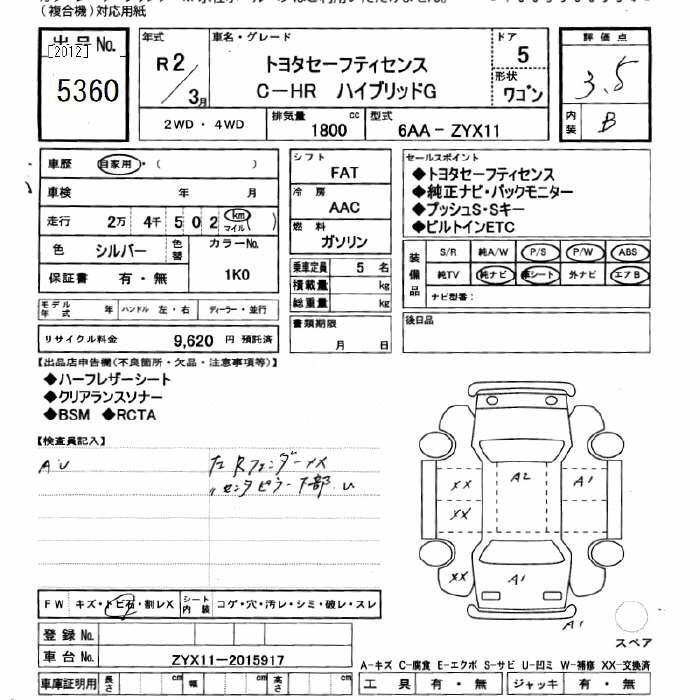 (複合機)対応用紙
出品No.
[2012]
5360
年式
R2/3月
車名・グレード
トヨタセーフティセンス
C-HR ハイブリッドG
ドア
5
形状
ワゴン
評価点
3.5
内装
B
2WD・4WD
排気量
1800 cc
型式
6AA-ZYX11
車歴 自家用・( )
車検 年 月
走行 2万 4千 5 0 2 km マイル
色 シルバー 色替 カラーNo. 1K0
保証書 有・無
モデル年式 年 ハンドル 左・右 ディーラー・並行
リサイクル料金 9,620 円 預託済
シフト
FAT
冷房
AAC
燃料
ガソリン
乗車定員 5 名
積載量 kg
総重量 kg
書類期限
月 日
セールスポイント
◆トヨタセーフティセンス
◆純正ナビ・バックモニター
◆プッシュS・Sキー
◆ビルトインETC
装備品
S/R 純A/W P/S P/W ABS
純TV 純ナビ 革シート 外ナビ エアB
ナビ型番:
後日品
【出品店申告欄(不良箇所・欠品・注意事項等)】
◆ハーフレザーシート
◆クリアランスソナー
◆BSM ◆RCTA
【検査員記入】
AU
左Rフェンダー XX
〃センタピラー下部 U
XX
XX
XX
A2
A1
A1
A1
スペア
FW キズ・トビ石・割レX シート内装 コゲ・穴・汚レ・シミ・破レ・スレ
登録No.
車台No. ZYX11-2015917
A-キズ C-腐食 E-エクボ S-サビ U-凹ミ W-補修 XX-交換済
車庫証明用 長さ cm 幅 cm 高さ cm
工具 有・無 ジャッキ 有・無